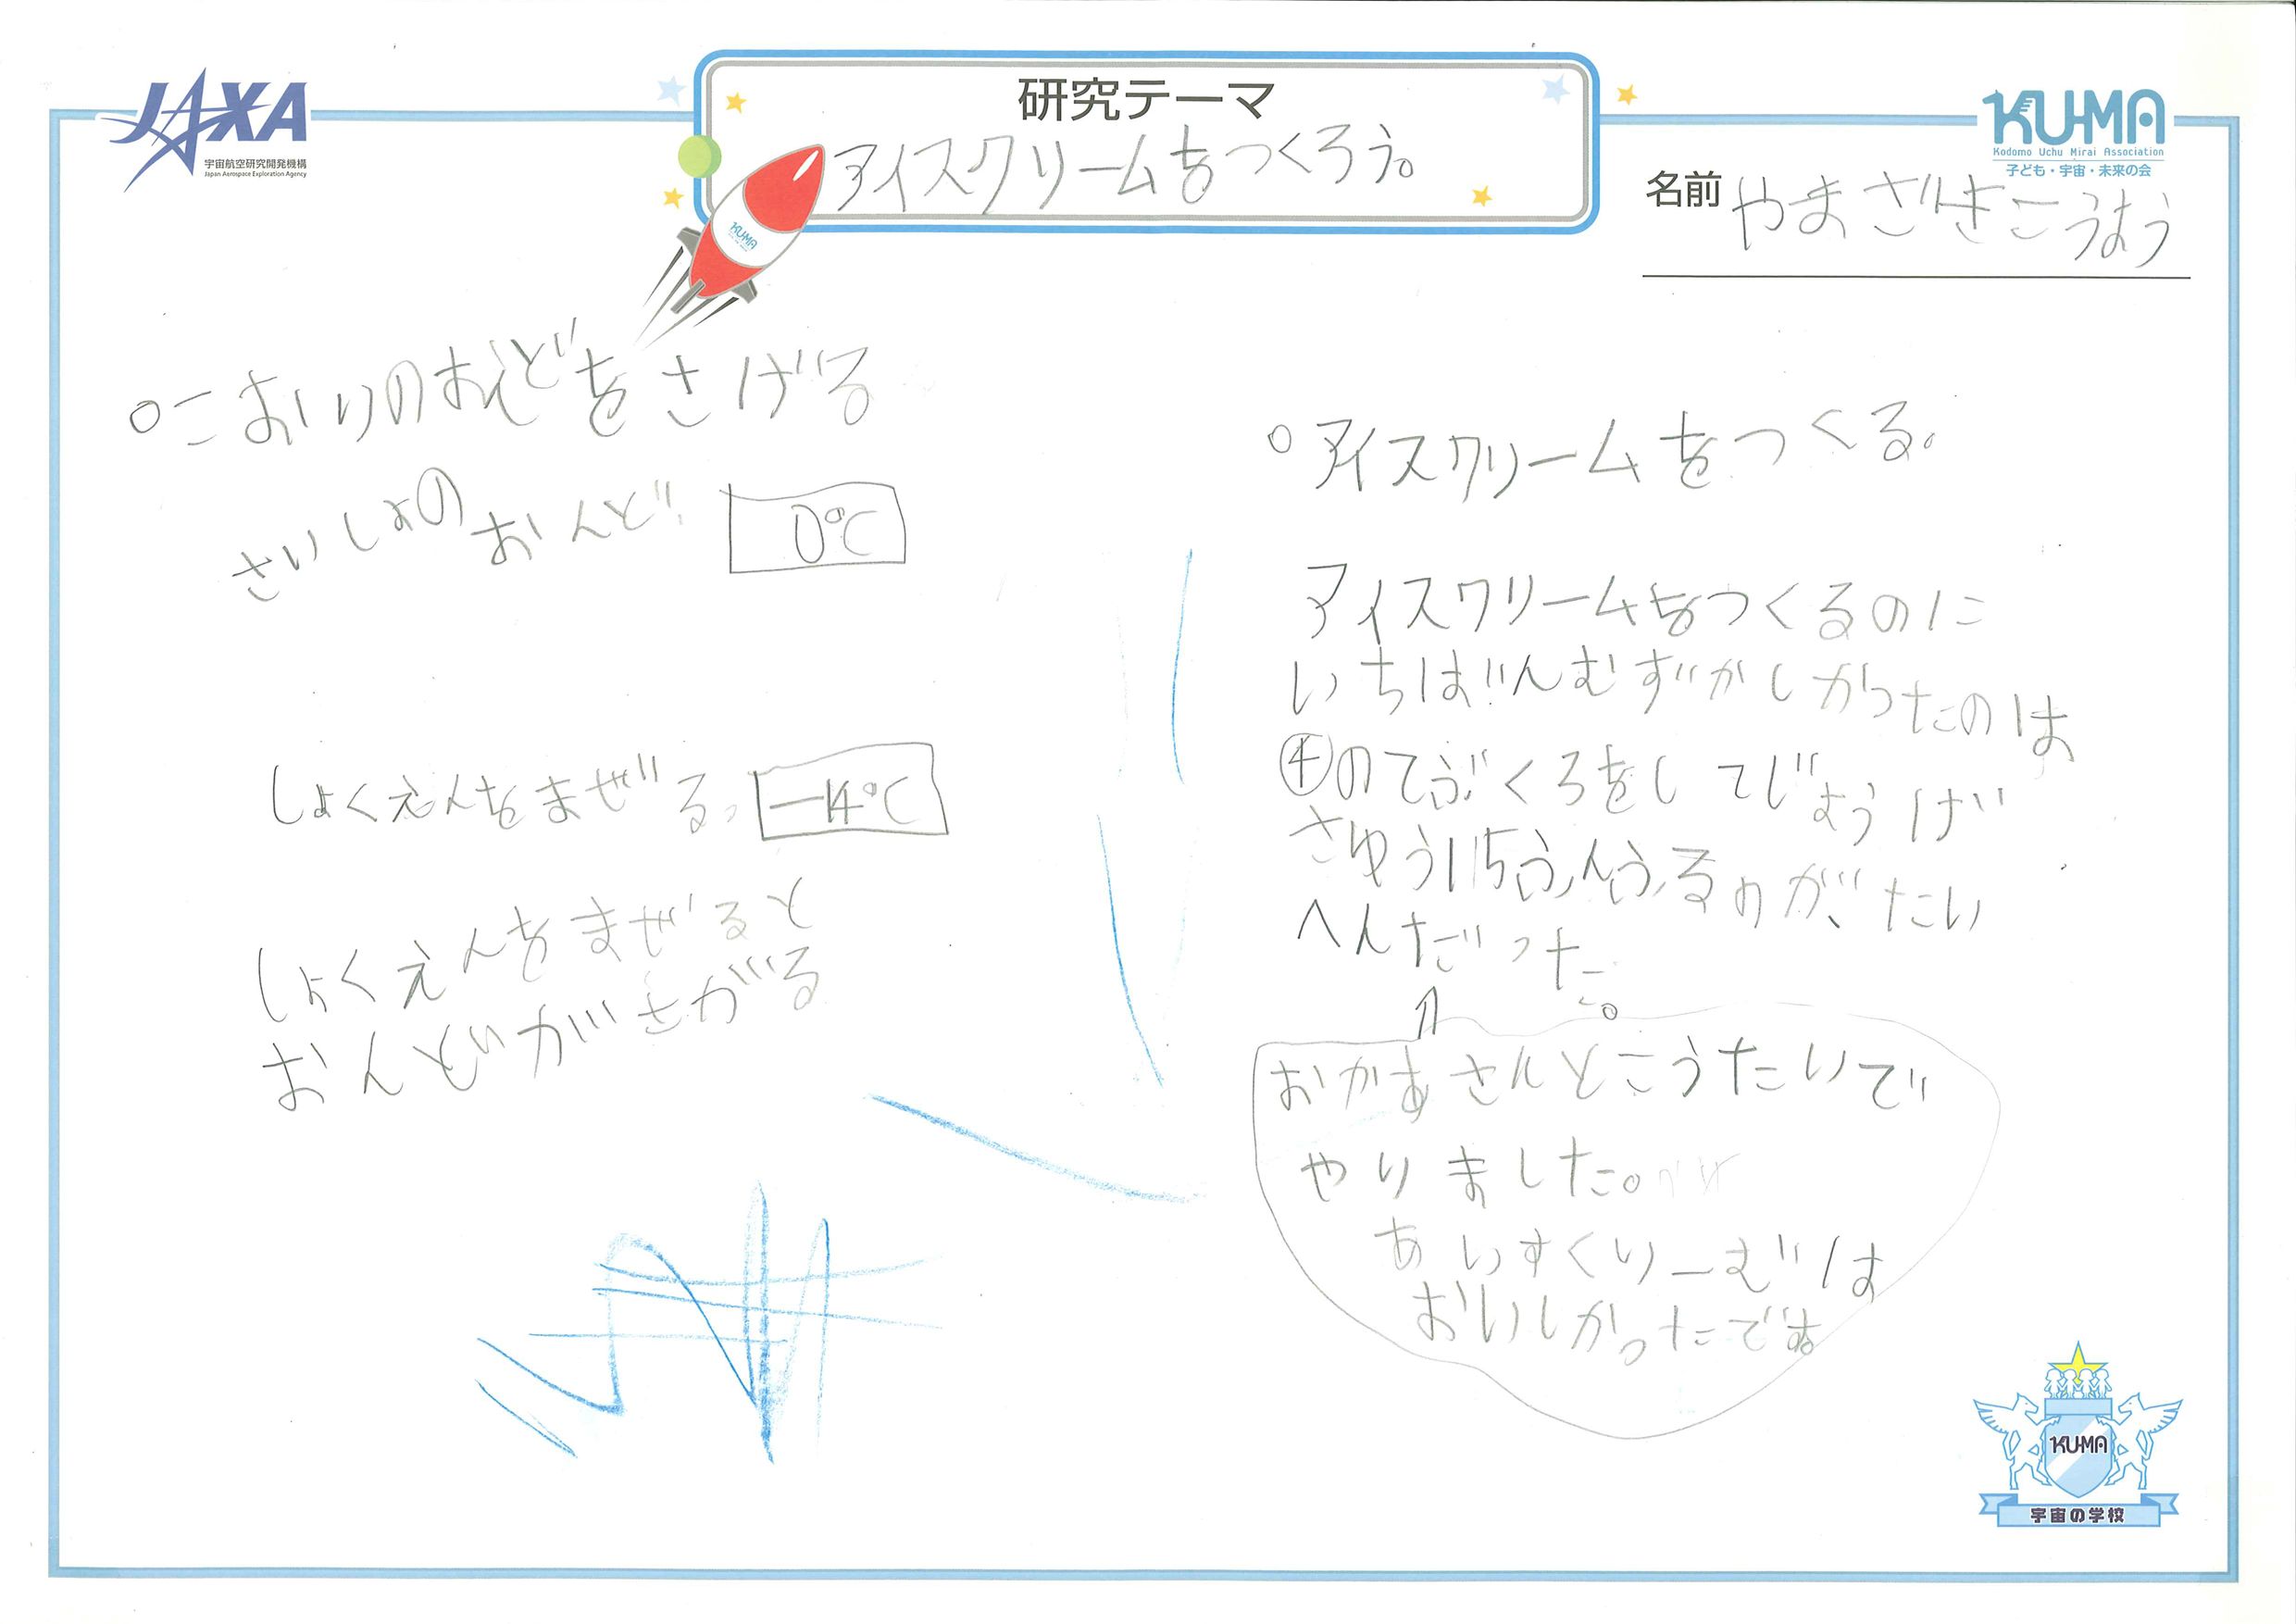 JAXA
宇宙航空研究開発機構
Japan Aerospace Exploration Agency
研究テーマ
アイスクリームをつくろう。
KUMA
KU-MA
Kodomo Uchu Mirai Association
子ども・宇宙・未来の会
名前 やまざきこうよう
○こおりのおんどをさげる
さいしょのおんど 0℃
しょくえんをまぜる。 -14℃
しょくえんをまぜると
おんどがさがる
○アイスクリームをつくる。
アイスクリームをつくるのに
いちばんむずかしかったのは
④のてぶくろをしてじょうげ
さゆう15ふんふるのがたい
へんだった。
↑
おかあさんとこうたいで
やりました。
あいすくりーむは
おいしかったです。
KUMA
宇宙の学校